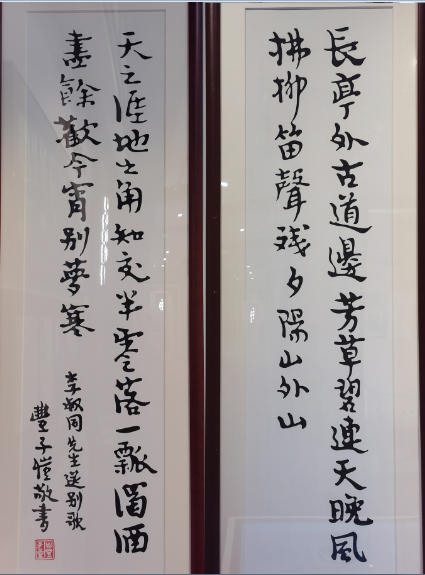 長亭外古道邊芳草碧連天晚風
拂柳笛聲殘夕陽山外山
天之涯地之角知交半零落一瓢濁酒
盡餘歡今宵別夢寒
李叔同先生送別歌
豐子愷敬書